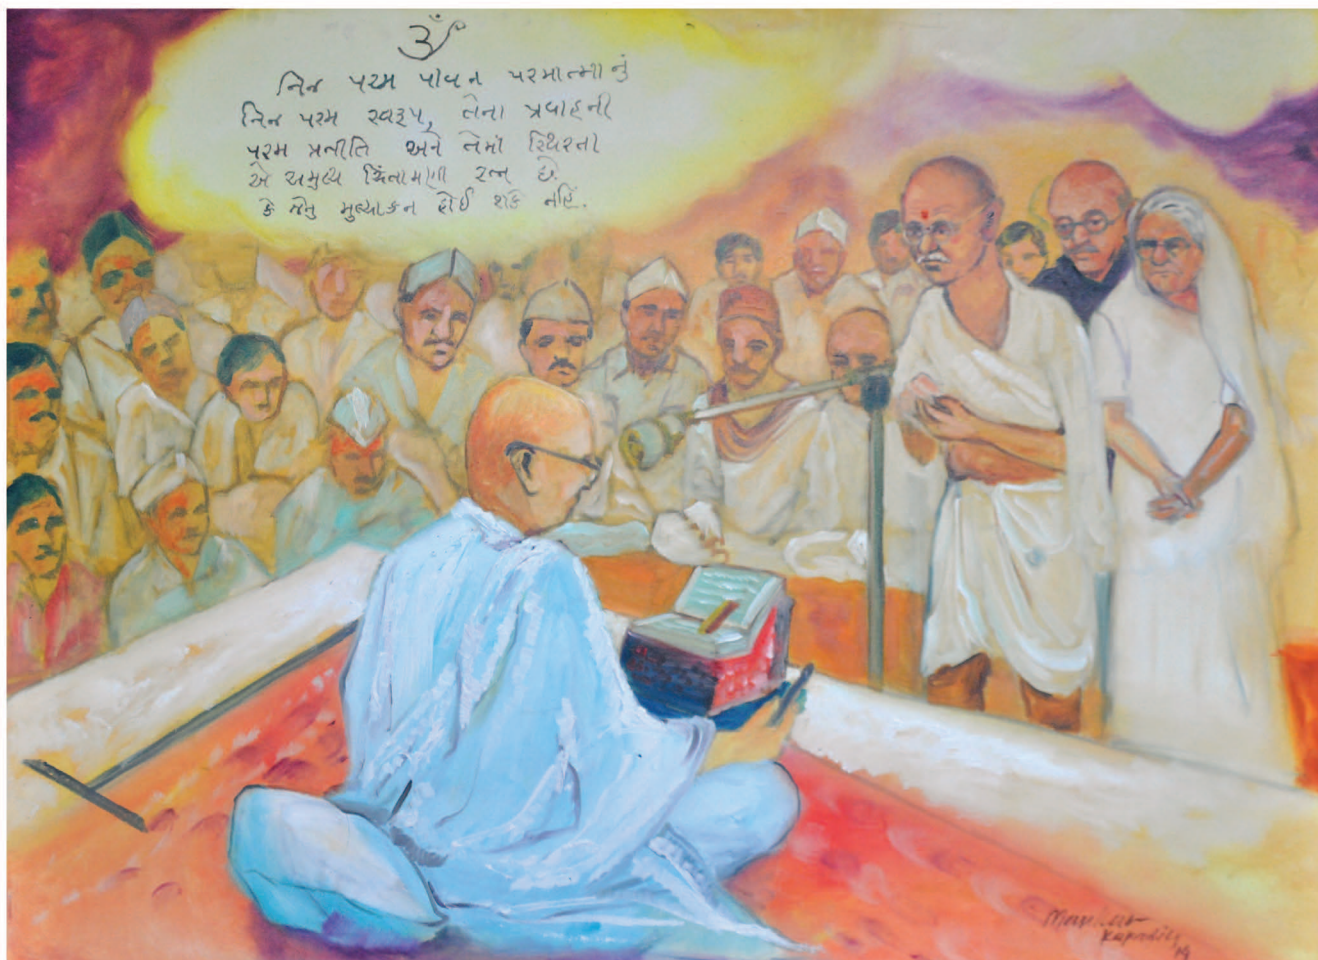 ૐ
નિજ પરમ પાવન પરમાત્માનું
નિજ પરમ સ્વરૂપ, તેના પ્રવાહની
પરમ પ્રતીતિ અને તેમાં સ્થિરતા
એ અમુલ્ય ચિંતામણી રત્ન છે.
કે જેનુ મુલ્યાકન હોઈ શકે નહિં.